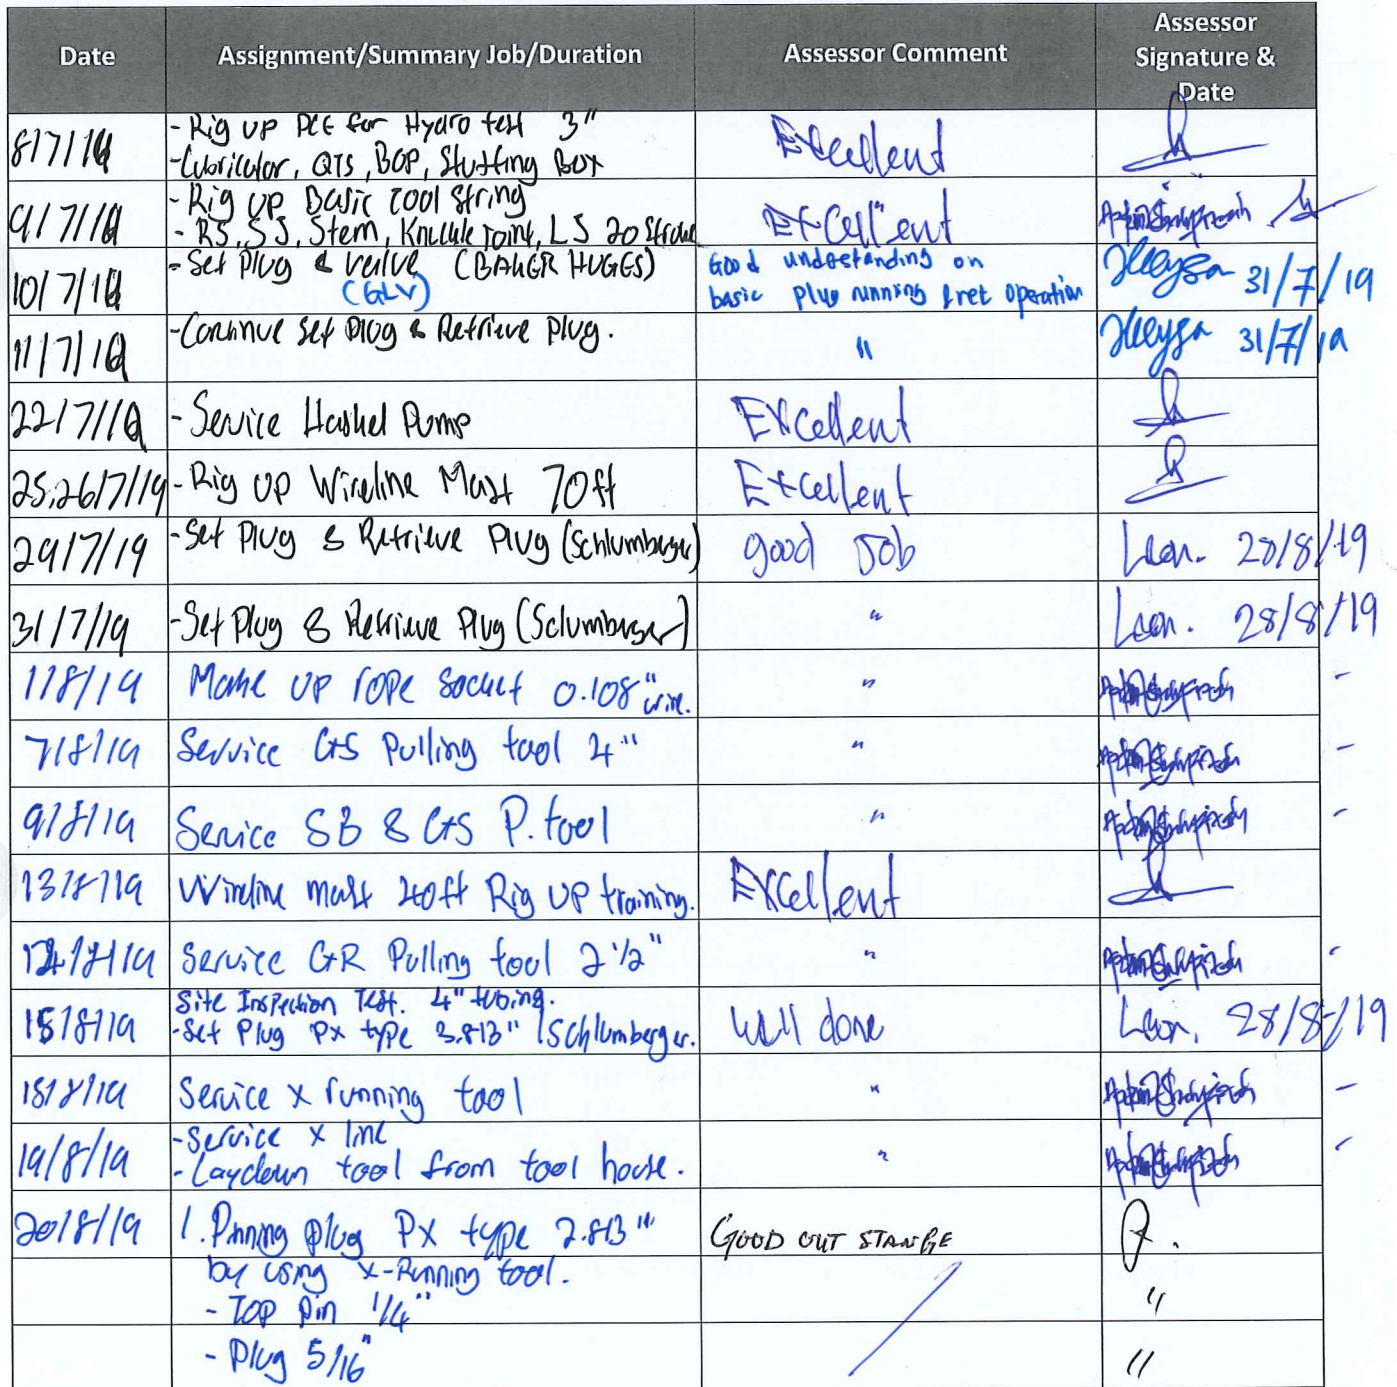 Date Assignment/Summary Job/Duration Assessor Comment Assessor Signature & Date
8/7/19 - Rig up PCE for Hydro test 3" Excellent
- Lubricator, QTS, BOP, Stuffing Box
9/7/19 - Rig up Basic tool string Excellent
- RS, SJ, Stem, Knuckle Joint, LS 20 Stroke
10/7/19 - Set Plug & valve (BAKER HUGES) Good undestanding on 31/7/19
(GLV) basic plug running & ret operation
11/7/19 - Continue set Plug & Retrieve plug. " 31/7/19
22/7/19 - Service Haskel Pump Excellent
25,26/7/19 - Rig up Wireline Mast 70ft Excellent
29/7/19 - Set Plug & Retrieve Plug (Schlumberger) good Job Leon. 28/8/19
31/7/19 - Set Plug & Retrieve Plug (Sclumberger) " Leon. 28/8/19
1/8/19 Make up rope socket 0.108" wire. " -
7/8/19 Service GS Pulling tool 4" " -
9/8/19 Service SB & GS P. tool " -
13/8/19 Wireline mast 40ft Rig up training. Excellent
14/8/19 Service GR Pulling tool 2 1/2" " -
Site Inspection Test. 4" tubing.
15/8/19 - Set Plug PX type 3.813" (Schlumberger. well done Leon. 28/8/19
18/8/19 Service x running tool " -
19/8/19 - Service x line " -
- Laydown tool from tool house.
20/8/19 1. Pinning plug PX type 2.813" GOOD OUT STANGE
by using x-Running tool.
- Top pin 1/4" "
- Plug 5/16" "